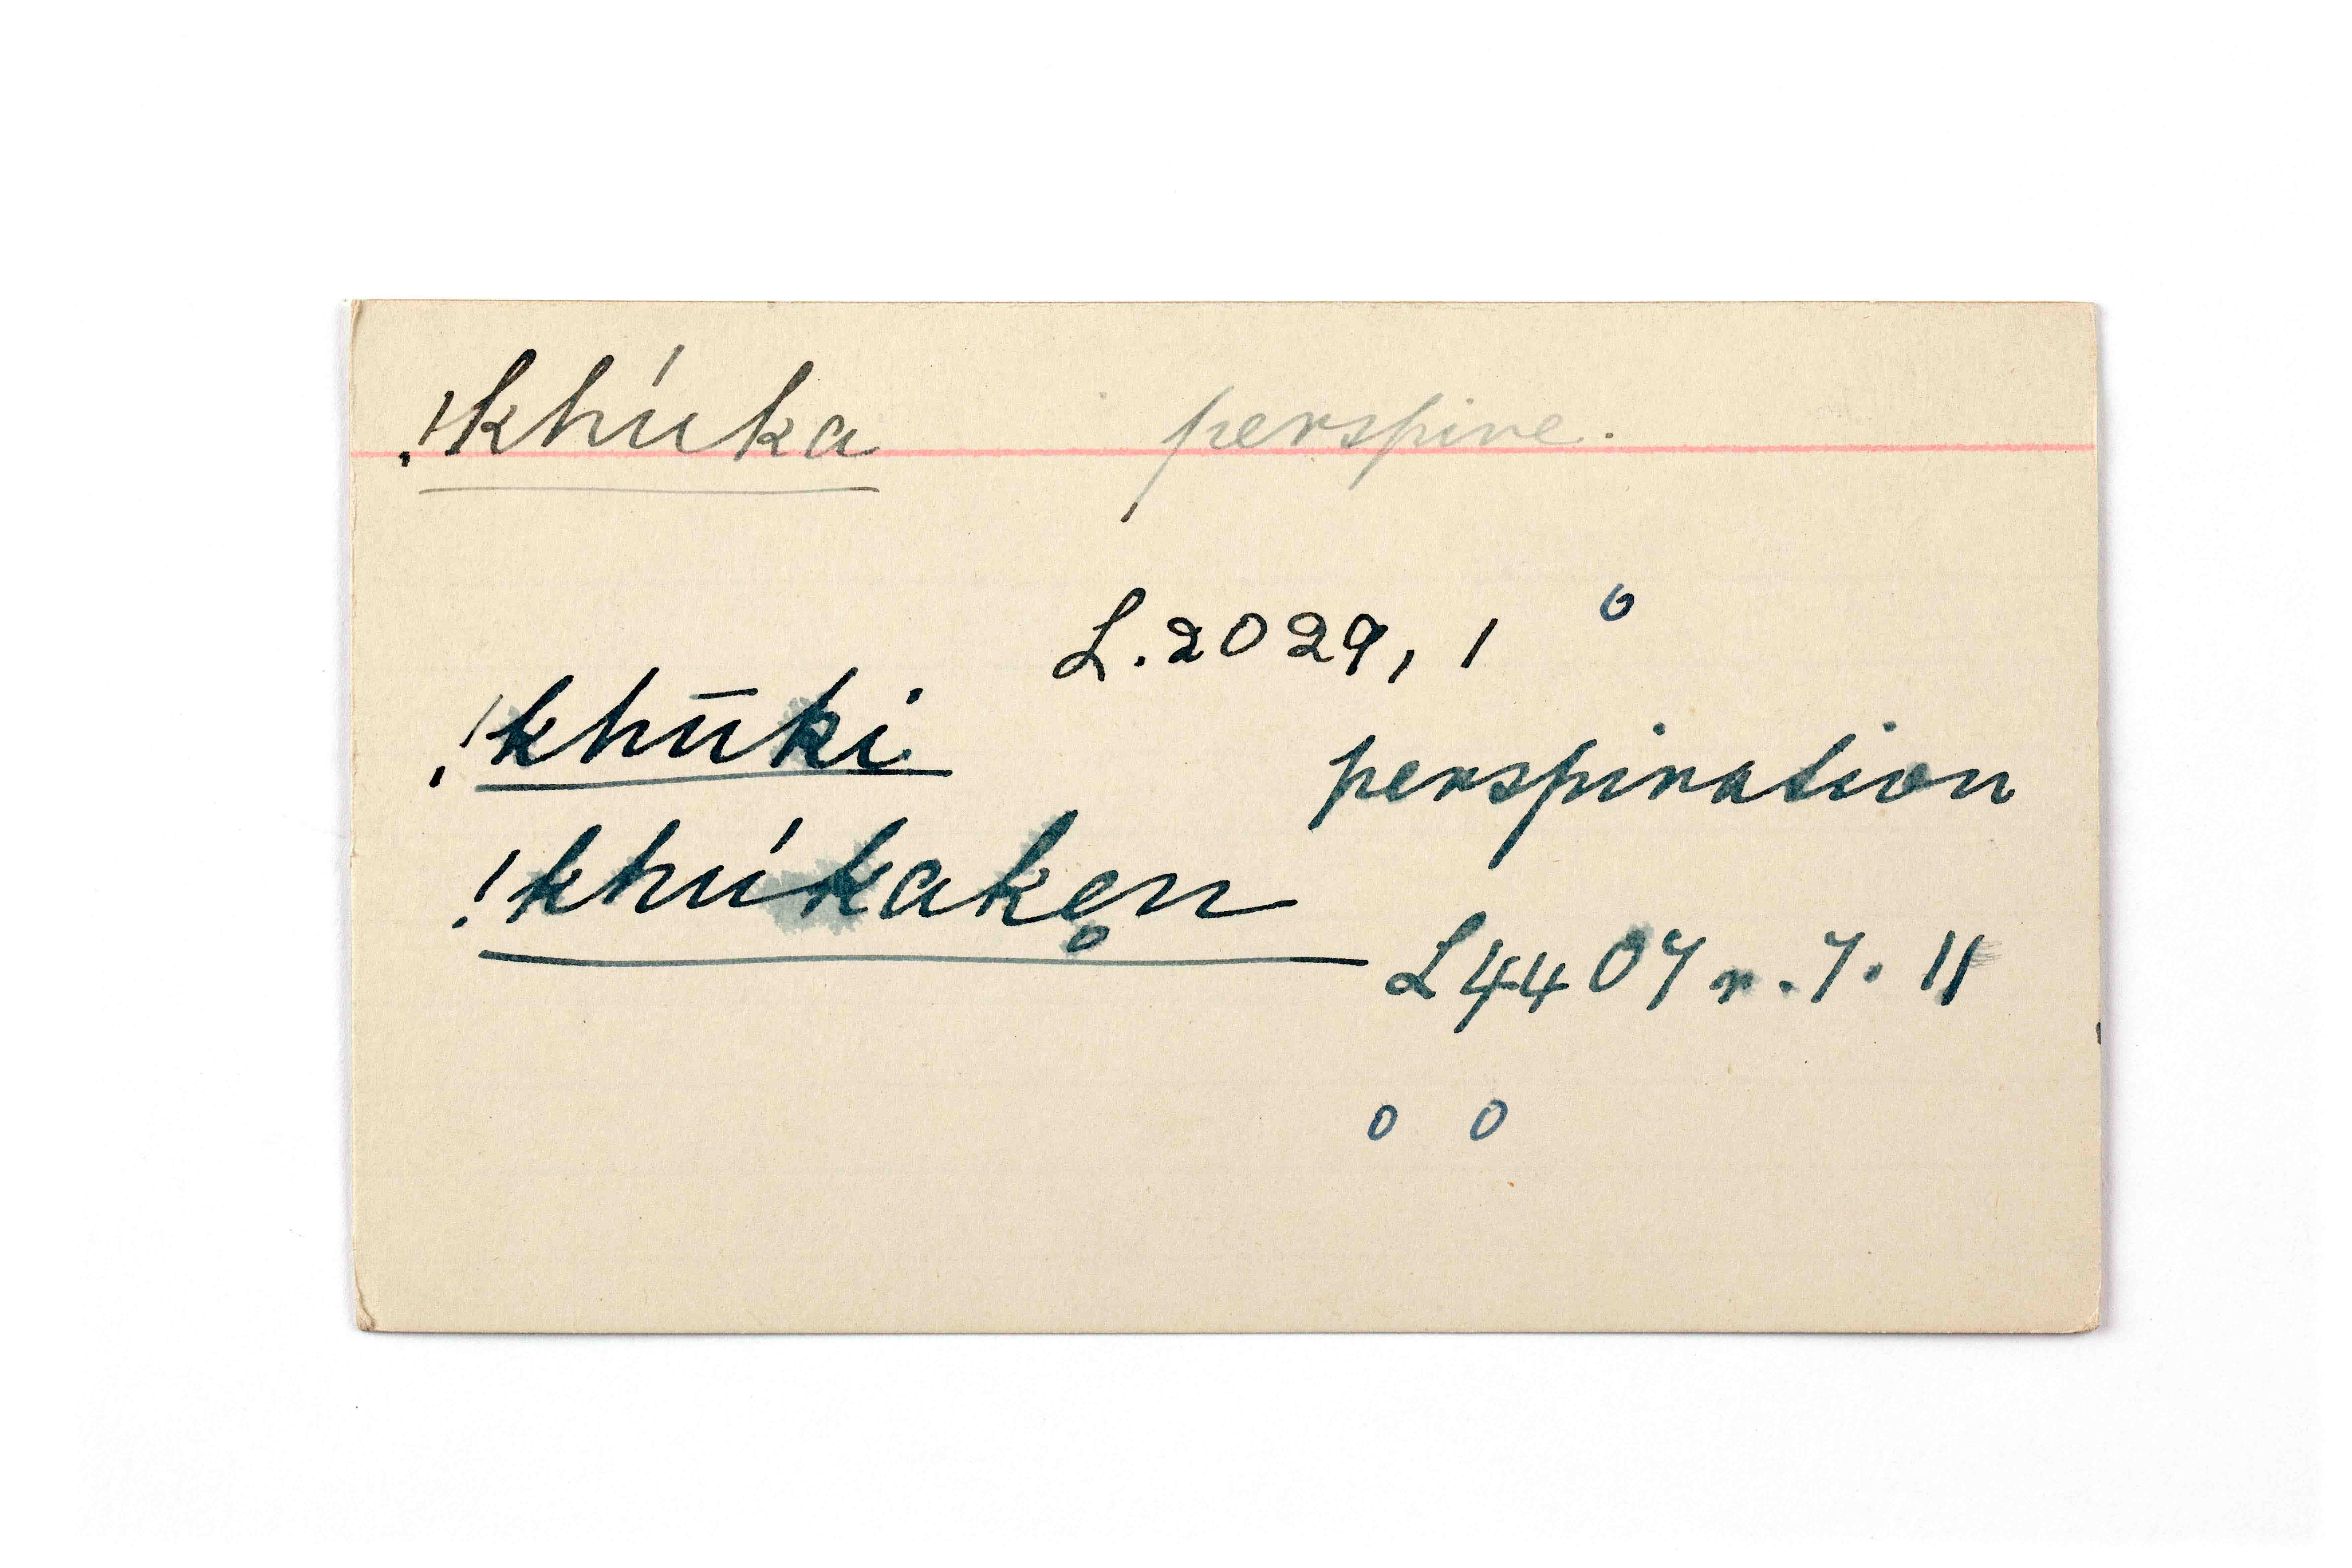 !khúka perspire.
L.2029, 1 o
!khūki perspiration
!khúkaken̥
L4407 r. 7. 11
o o